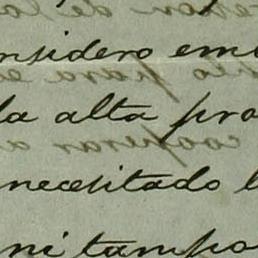 nsidero emi
la alta pro
necesitado l
ni tampo